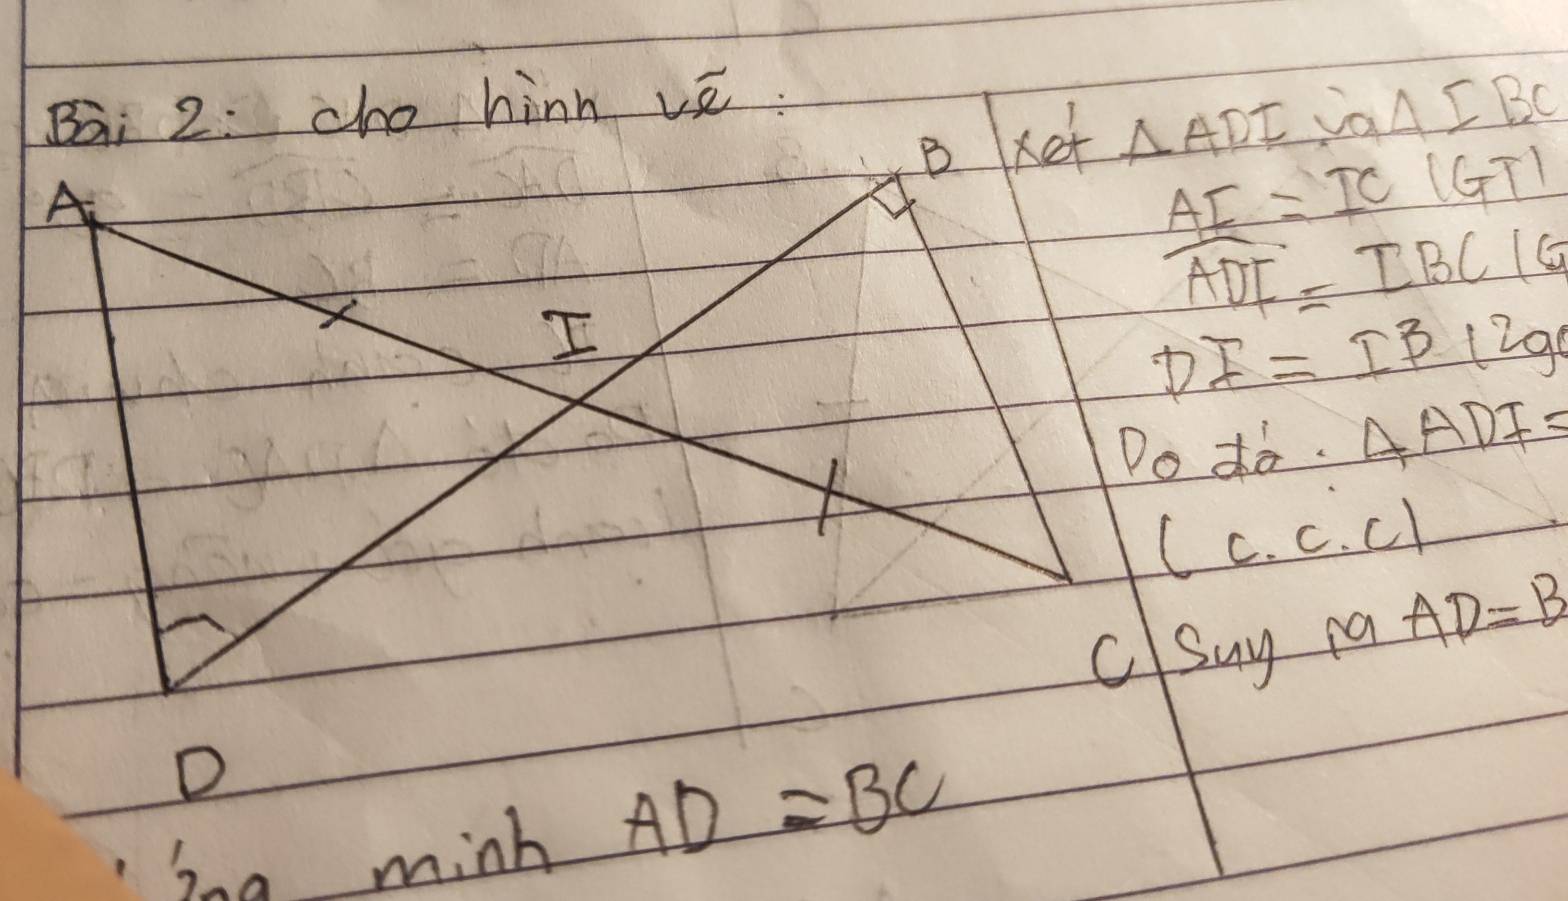 Bài 2: cho hình vẽ:
A
B
I
D
C
minh AD = BC
Xét Δ ADI và Δ IBC
AI = IC (GT)
ADI = IBC (G
DI = IB (2gó
Do đó: Δ ADI =
(c.c.c)
Suy ra AD = B